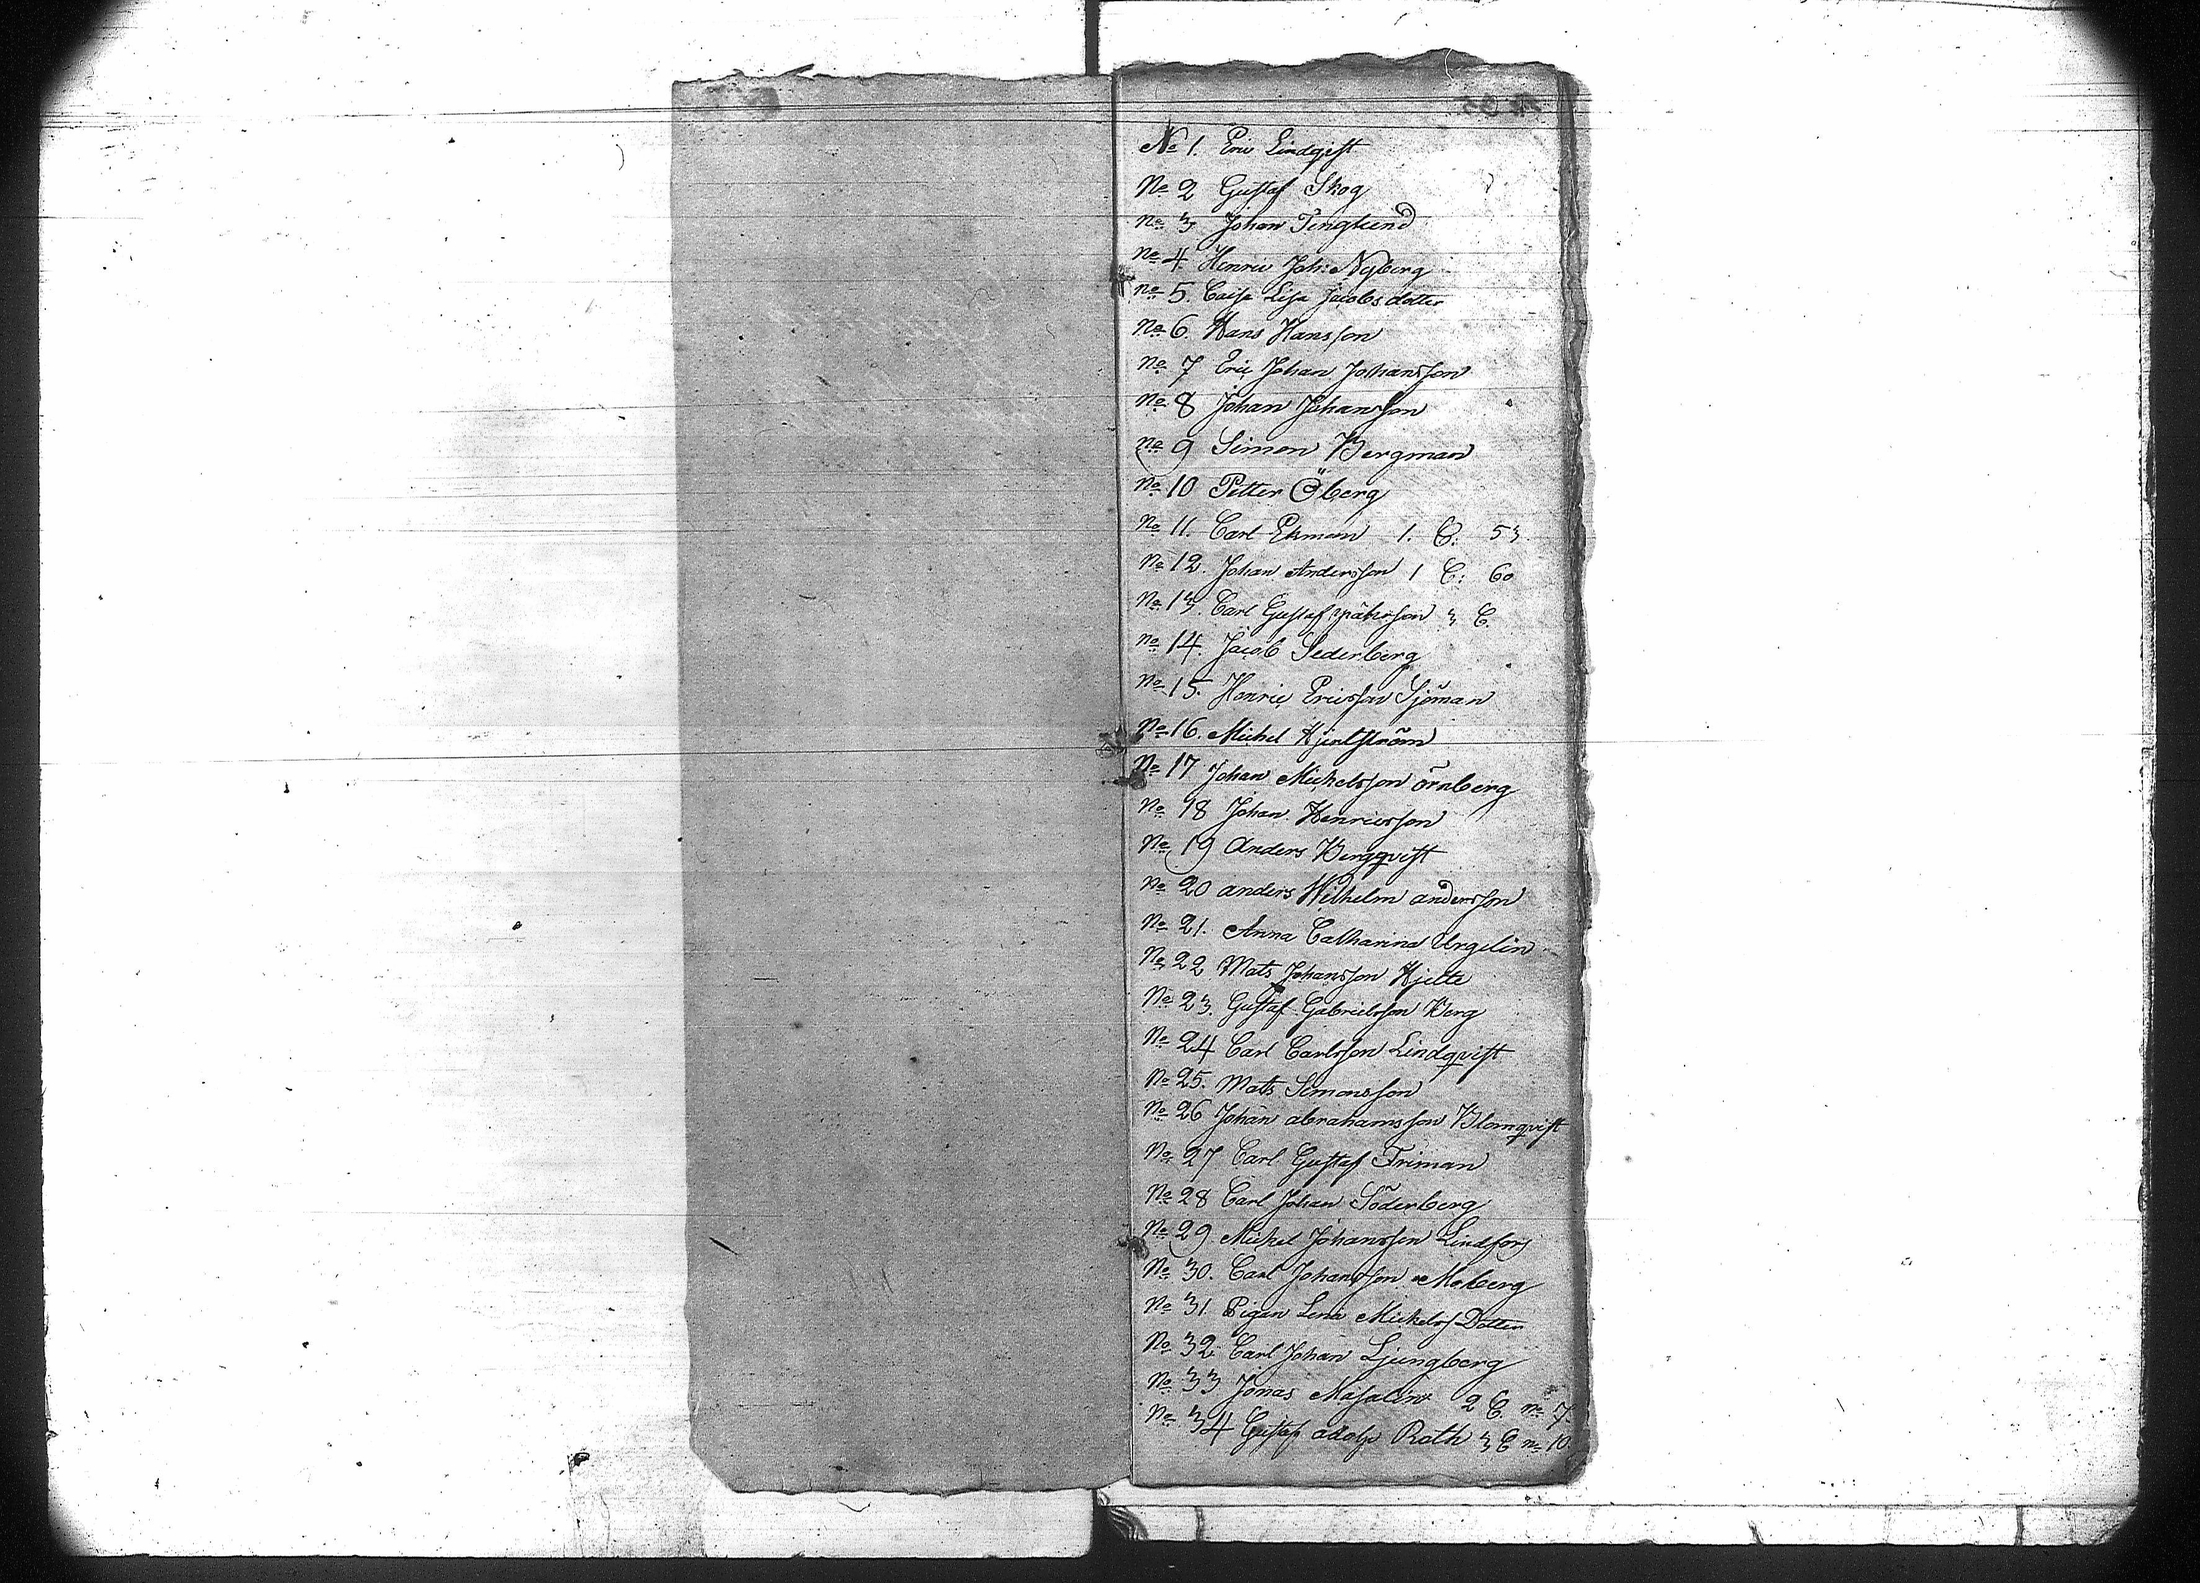 No 1. Eric Lindqist
No 2 Gustaf Skog
No 3 Johan Tenglund
No 4. Henric Joh: Nyberg
No 5. Caisa Lisa Jacobsdotter
No 6. Hans Hansson
No 7 Eric Johan Johansson
No 8 Johan Johansson
No 9 Simon Bergman
No 10 Petter Öberg
No 11. Carl Ekman 1. C. 53
No 12. Johan Andersson 1 C: 60
No 13. Carl Gustaf 3 C.
No 14. Jacob Sederberg
No 15. Henric Ericsson Sjöman
No 16. Michel Hjertström
No 17 Johan Michelsson örnberg
No 18 Johan Henricsson
No 19 Anders Bergqvist
No 20 anders Wilhelm andersson
No 21. Anna Catharina Urgelin
No 22 Mats Johansson Hjelte
No 23. Gustaf Gabrielsson Berg
No 24 Carl Carlsson Lindqvist
No 25. Mats Simonsson
No 26 Johan abrahamsson Blomqvist
No 27 Carl Gustaf Friman
No 28 Carl Johan Söderberg
No 29 Michel Johansson Lindfors
No 30. Carl Johansson Moberg
No 31. Pigan Lena Michels Dotter
No 32. Carl Johan Ljungberg
No 33 Jonas Masalin 2 C. no 7.
No 34 Gustaf adolp Roth 3 C no 10.